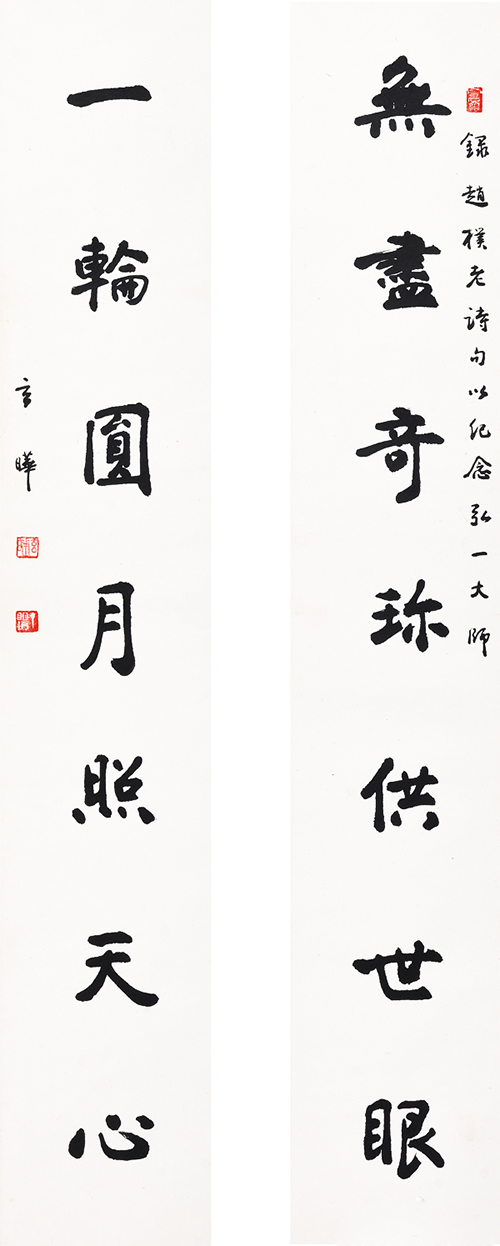 錄趙樸老詩句以紀念弘一大師
無盡奇珎供世眼
一輪圓月照天心
玄曄